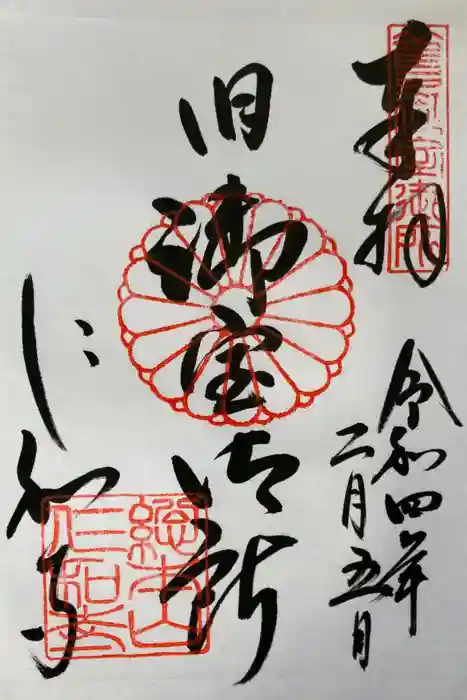 奉拝
令和四年
二月五日
旧御室御所
仁和寺
總本山
仁和寺